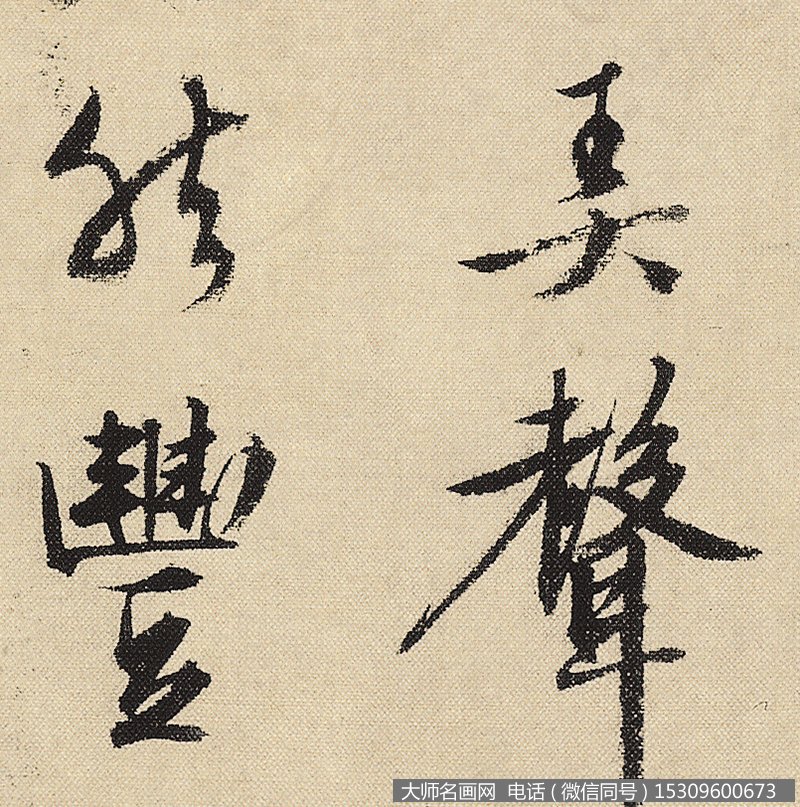 美聲
能豐
大师名画网 电话（微信同号）15309600673